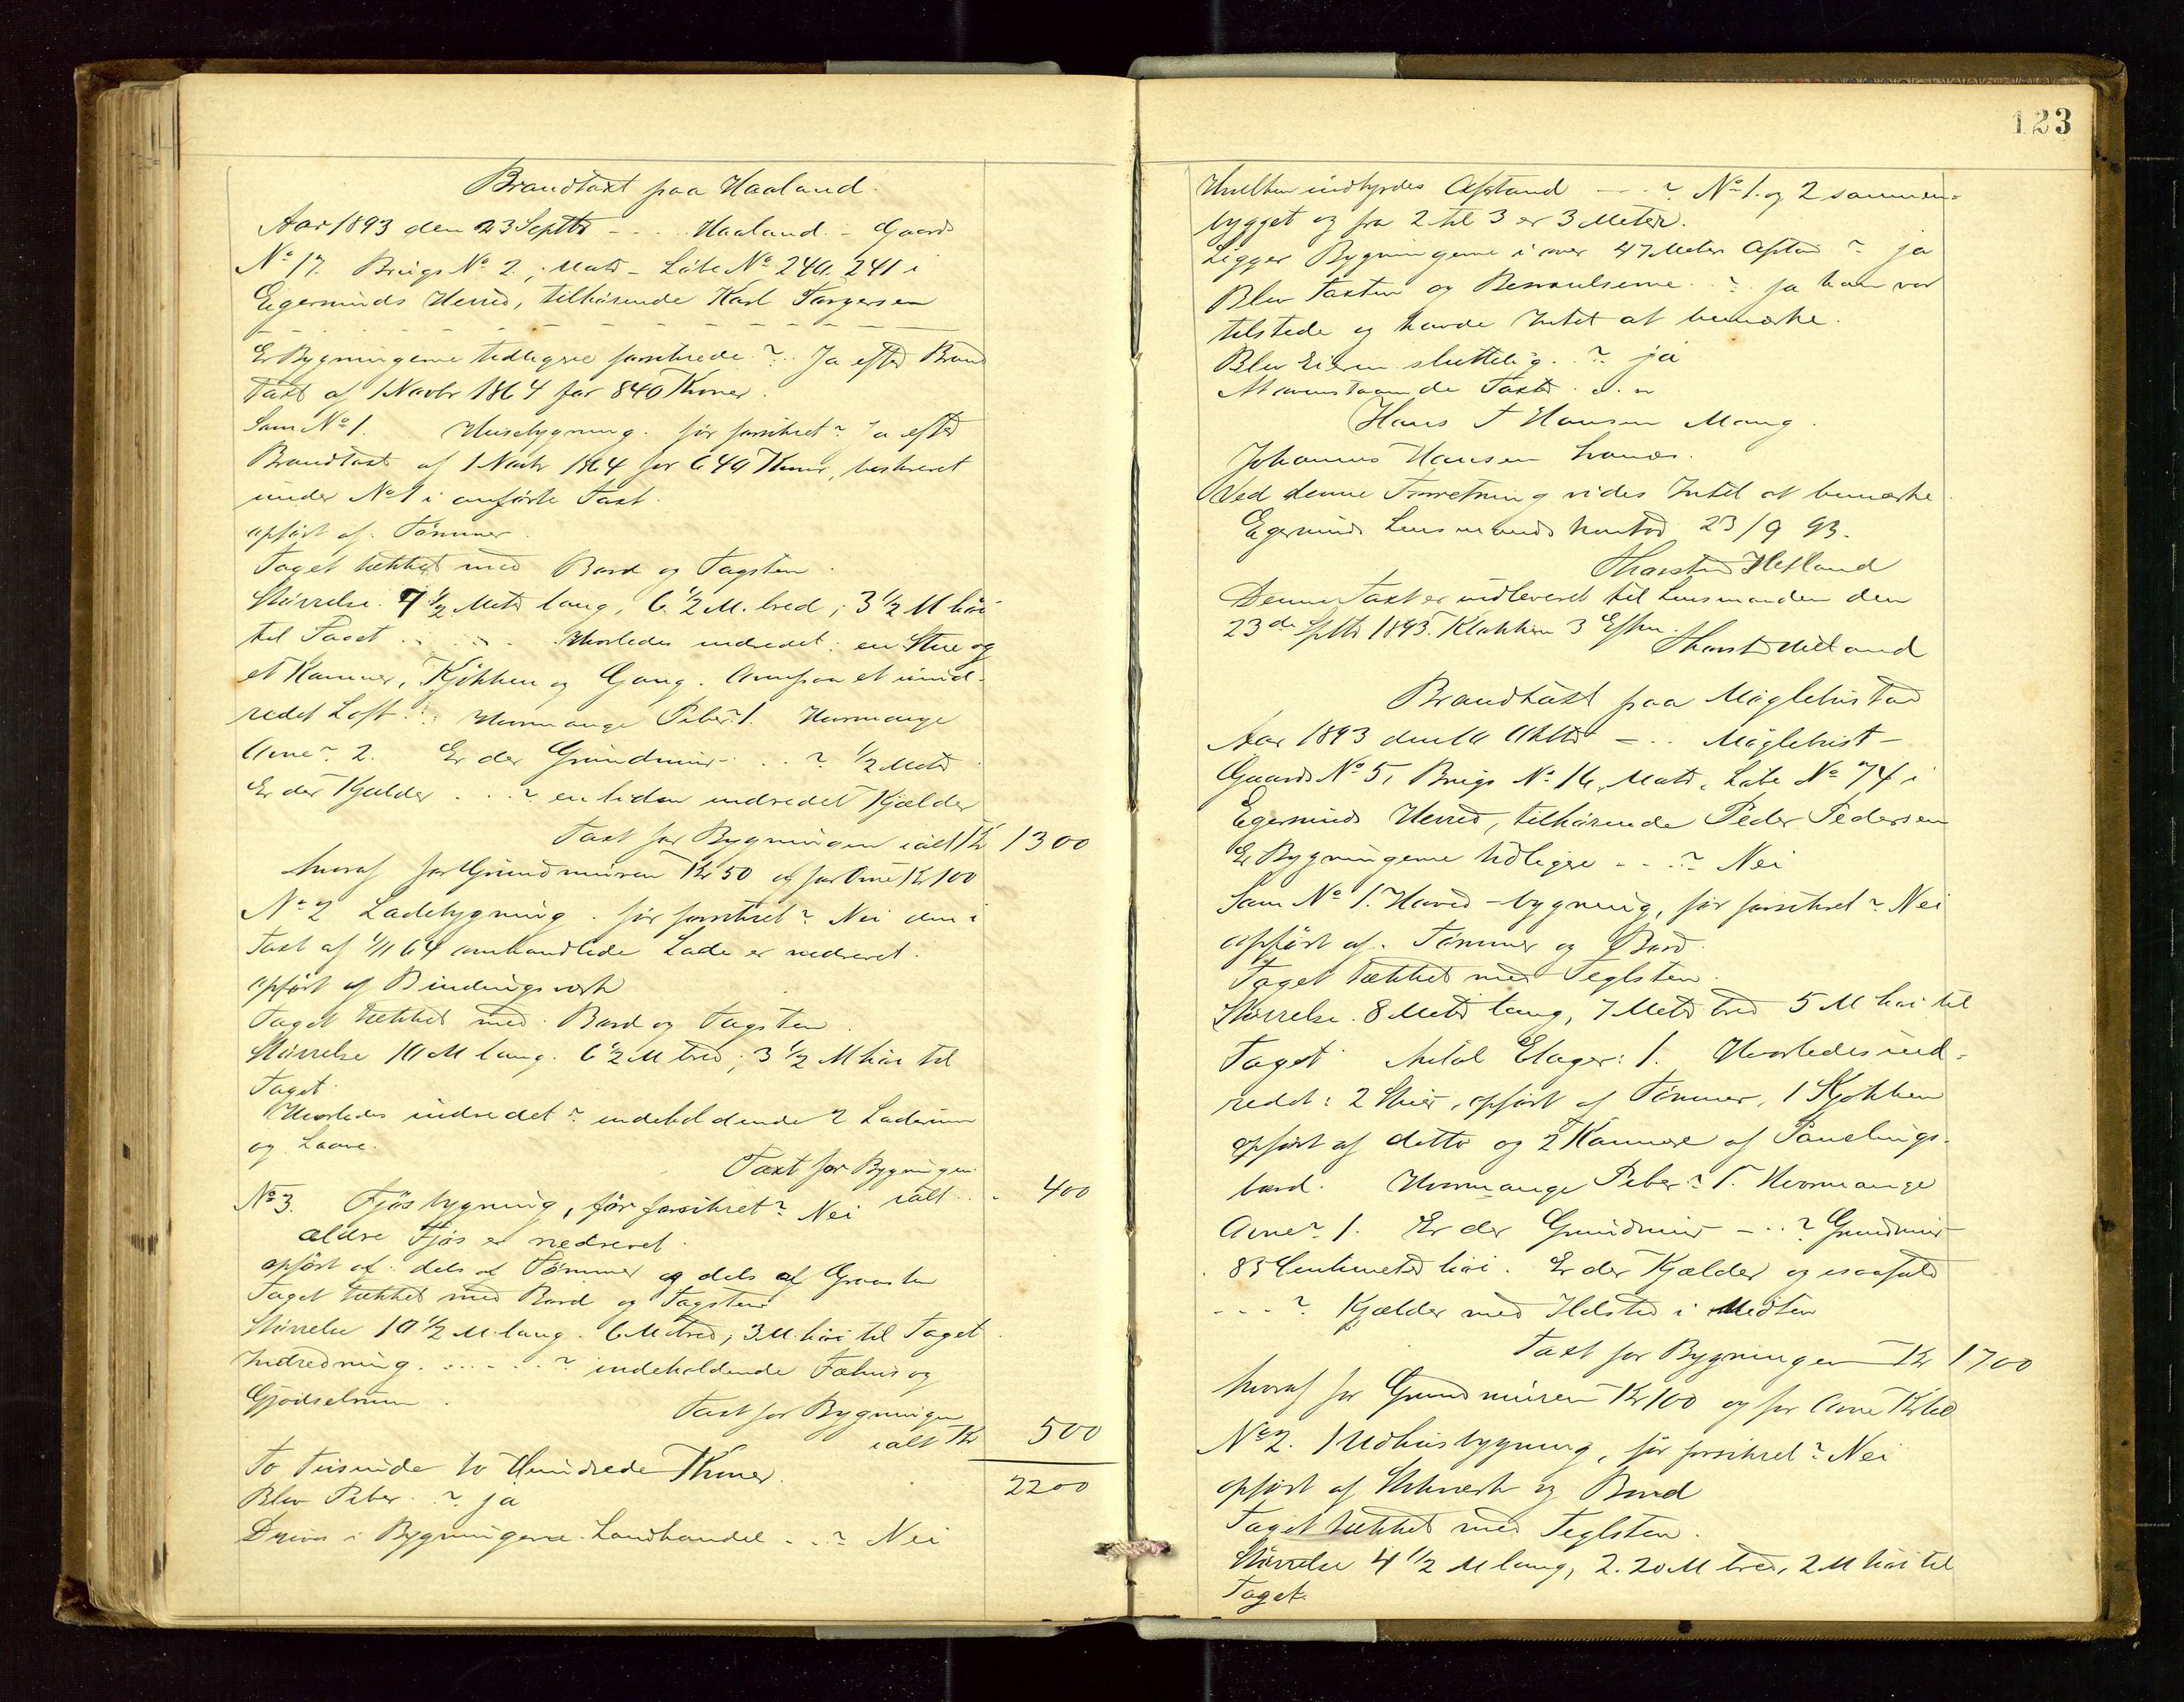 Brandtaxt paa Haaland.
Aar 1893 den 23 Septbr - - . Haaland - Gaards
No 17. Brugs No 2, Matr - Løbe No 240. 241 i
Egersunds Herred, tilhørende Karl Torgersen
Er Bygningerne tidligere forsikrede ? .. Ja efter Brand
taxt af 1 Novbr 1864 for 840 Kroner.
Som No 1. Husebygning. før forsikret? Ja efter
Brandtaxt af 1 Novbr 1864 for 640 Kroner, beskrevet
under No 1 i anførte Taxt.
opført af. Tømmer.
Taget tækket med Bord og Tagsten.
Størrelse. 7 1/2 Meter lang, 6 1/2 M. bred, 3 1/2 M høi
til Taget . . . . Hvorledes indredet: en Stue og
et Kammer, Kjøkken og Gang. Ovenpaa et uind-
redet Loft. .. Hvormange Piber? 1. Hvormange
Ovne? 2. Er der Grundmur - . . ? 1/2 Meter
Er der Kjælder . . . ? en liden indredet Kjælder
Taxt for Bygningen ialt Kr 1300
hvoraf for Grundmuren Kr 50 og for Ovne Kr 100
No 2 Ladebygning. før forsikret? Nei den i
Taxt af 1/11 64 omhandlede Lade er nedrevet.
opført af Bindingsværk
Taget tækket med. Bord og Tagsten.
Størrelse 10 M lang. 6 1/2 M bred, 3 1/2 M høi til
Taget
Hvorledes indredet? indeholdende 2 Laderum
og Laave.
Taxt for Bygningen
ialt . . . 400
No 3. Fjøsbygning, før forsikret? Nei
ældre Fjøs er nedrevet.
opført af. dels af Tømmer og dels af Graasten
Taget tækket med Bord og Tagsten
Størrelse 10 1/2 M. lang. 6 M bred, 3 M. høi til Taget.
Indredning . . . . . . ? indeholdende Fæhus og
Gjødselrum.
Taxt for Bygningen
ialt Kr 500
To Tusinde to Hundrede Kroner.
2200
Blev Piber . ? ja
Drives i Bygningerne Landhandel . . . ? Nei
123
Hvilken indbyrdes Afstand - - - ? No 1. og 2 sammen-
bygget og fra 2 til 3 er 3 Meter.
Ligger Bygningerne i over 47 Meter Afstand ? ja
Blev Taxten og Beskrivelserne . . ? ja han var
tilstede og havde Intet at bemærke.
Blev Eieren sluttelig . . ? ja
At ovenstaaende Taxt
Hans T Hansen Mong.
Johannes Hansen
Ved denne Forretning vides Intet at bemærke.
Egersunds Lensmandskontor 23/9 93.
Thorsten Hetland
Denne Taxt er indleveret til Lensmanden den
23de Septbr 1893. Klokken 3 Efterm.
Thorst Hetland
Brandtaxt paa Møglebustad
Aar 1893 den 10 Oktbr - . . Møglebust -
Gaards No 5, Brugs No 16, Matr. Løbe No 74 i
Egersunds Herred, tilhørende Peder Pedersen
Er Bygningerne tidligere - - . ? Nei
Som No 1. Hoved-bygning, før forsikret? Nei
opført af. Tømmer og Bord.
Taget tækket med Teglsten.
Størrelse. 8 Meter lang, 7 Meter bred 5 M høi til
Taget. Antal Etager: 1. Hvorledes ind-
redet: 2 Stuer, opført af Tømmer, 1 Kjøkken
opført af ditto og 2 Kammere af Panelings-
bord. Hvormange Piber? 1. Hvormange
Ovne? 1. Er der Grundmur - . . ? Grundmur
85 Centimeter høi. Er der Kjælder og isaafald
- - - ? Kjælder med Ildsted i Midten
Taxt for Bygningen Kr 1700
hvoraf for Grundmuren Kr 100 og for Ovne Kr
No 2. 1 Udhusbygning, før forsikret? Nei
opført af Stilværk og Bord
Taget tækket med Teglsten.
Størrelse 4 1/2 M lang, 2.20 M bred, 2 M høi til
Taget.